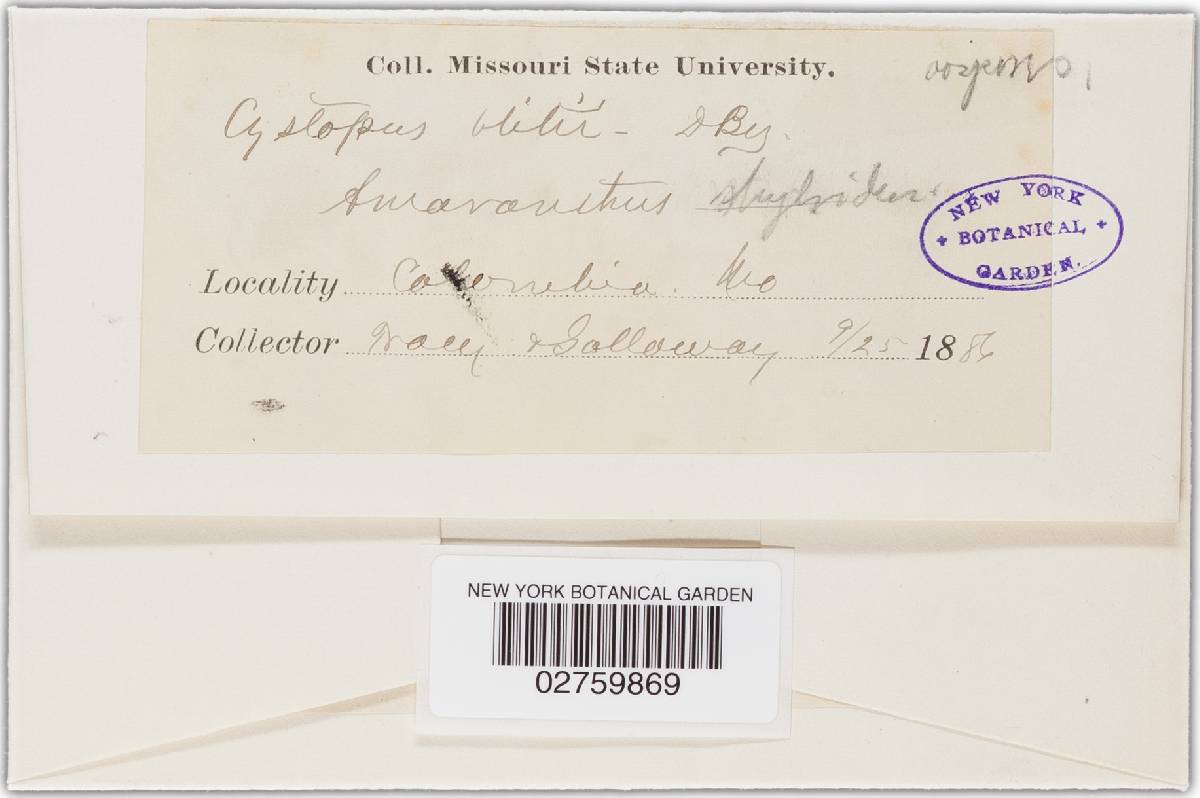 Coll. Missouri State University.
Cystopus bliti - DBy.
Amaranthus hybridus
Locality Columbia. Mo
Collector Tracy & Galloway 9/25 1886
NEW YORK
BOTANICAL
GARDEN.
NEW YORK BOTANICAL GARDEN
02759869